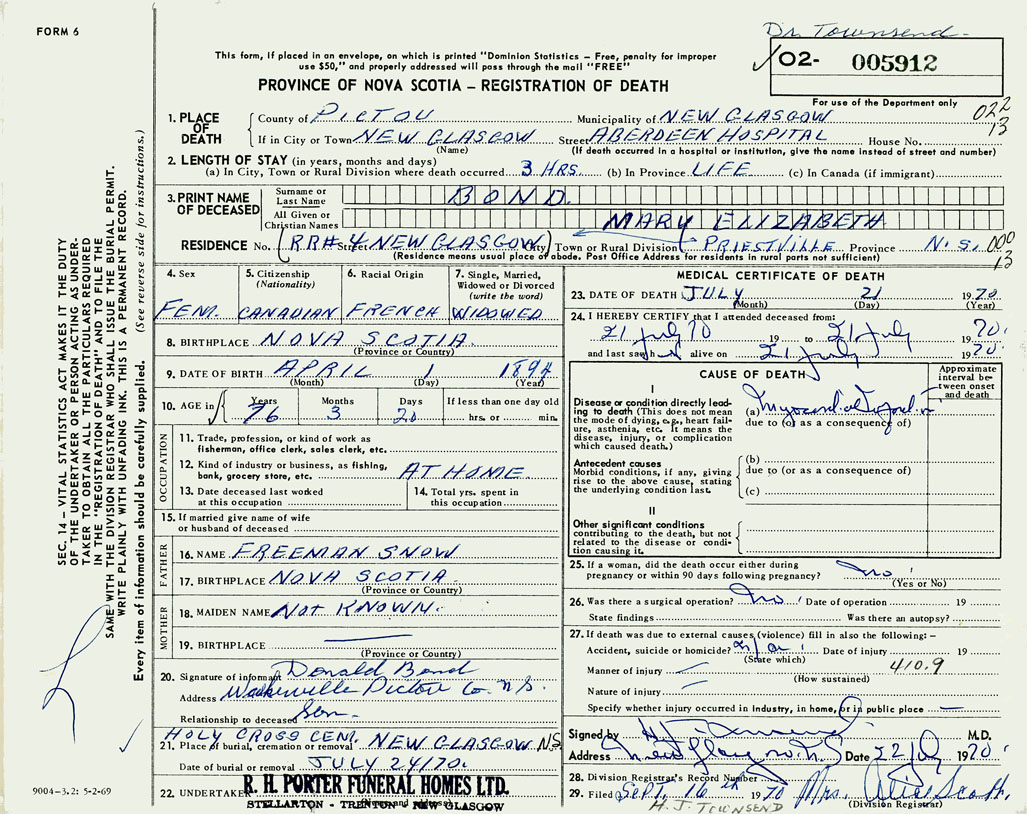 FORM 6
Dr. Townsend
This form, if placed in an envelope, on which is printed "Dominion Statistics – Free, penalty for improper
use $50," and properly addressed will pass through the mail "FREE"
02- 005912
PROVINCE OF NOVA SCOTIA – REGISTRATION OF DEATH
For use of the Department only
022
13
1. PLACE OF DEATH County of PICTOU Municipality of NEW GLASGOW
If in City or Town NEW GLASGOW Street ABERDEEN HOSPITAL House No.
(Name) (If death occurred in a hospital or institution, give the name instead of street and number)
2. LENGTH OF STAY (in years, months and days)
(a) In City, Town or Rural Division where death occurred 3 HRS. (b) In Province LIFE (c) In Canada (if immigrant)
3. PRINT NAME OF DECEASED Surname or Last Name BOND
All Given or Christian Names MARY ELIZABETH
RESIDENCE No. RR# 4 Street NEW GLASGOW City Town or Rural Division PRIESTVILLE Province N.S. 000
13
(Residence means usual place of abode. Post Office Address for residents in rural parts not sufficient)
4. Sex 5. Citizenship (Nationality) 6. Racial Origin 7. Single, Married, Widowed or Divorced (write the word)
FEM. CANADIAN FRENCH WIDOWED
8. BIRTHPLACE NOVA SCOTIA
(Province or Country)
9. DATE OF BIRTH APRIL 1 1894
(Month) (Day) (Year)
10. AGE in Years Months Days If less than one day old
76 3 20 hrs. or min.
OCCUPATION
11. Trade, profession, or kind of work as
fisherman, office clerk, sales clerk, etc.
12. Kind of industry or business, as fishing,
bank, grocery store, etc. AT HOME
13. Date deceased last worked at this occupation 14. Total yrs. spent in this occupation
15. If married give name of wife
or husband of deceased
FATHER
16. NAME FREEMAN SNOW
17. BIRTHPLACE NOVA SCOTIA
(Province or Country)
MOTHER
18. MAIDEN NAME NOT KNOWN.
19. BIRTHPLACE
(Province or Country)
20. Signature of informant Donald Bond
Address Pictou Co. N.S.
Relationship to deceased Son
HOLY CROSS CEM.
21. Place of burial, cremation or removal NEW GLASGOW NS
Date of burial or removal JULY 24/70.
22. UNDERTAKER R. H. PORTER FUNERAL HOMES LTD.
STELLARTON - TRENTON - NEW GLASGOW
MEDICAL CERTIFICATE OF DEATH
23. DATE OF DEATH JULY 21 1970
(Month) (Day) (Year)
24. I HEREBY CERTIFY that I attended deceased from:
21 July 70 19 to 21 July 1970
and last saw h alive on 21 July 1970
CAUSE OF DEATH
Approximate interval between onset and death
I
Disease or condition directly leading to death (This does not mean the mode of dying, e.g., heart failure, asthenia, etc. It means the disease, injury, or complication which caused death.)
(a) Myocardial
due to (or as a consequence of)
Antecedent causes
Morbid conditions, if any, giving rise to the above cause, stating the underlying condition last.
(b)
due to (or as a consequence of)
(c)
II
Other significant conditions
contributing to the death, but not related to the disease or condition causing it.
25. If a woman, did the death occur either during
pregnancy or within 90 days following pregnancy? no
(Yes or No)
26. Was there a surgical operation? No Date of operation 19
State findings Was there an autopsy?
27. If death was due to external causes (violence) fill in also the following:–
Accident, suicide or homicide? Date of injury 19
(State which) 410.9
Manner of injury
(How sustained)
Nature of injury
Specify whether injury occurred in industry, in home, or in public place
Signed by M.D.
Address New Glasgow N.S. Date 22 July 1970
28. Division Registrar's Record Number
29. Filed SEPT. 16th 1970 Mrs. Scott
(Division Registrar)
H. J. TOWNSEND
SEC. 14 – VITAL STATISTICS ACT MAKES IT THE DUTY
OF THE UNDERTAKER OR PERSON ACTING AS UNDER-
TAKER TO OBTAIN ALL THE PARTICULARS REQUIRED
IN THE "REGISTRATION OF DEATH" AND TO FILE THE
SAME WITH THE DIVISION REGISTRAR WHO SHALL ISSUE THE BURIAL PERMIT.
WRITE PLAINLY WITH UNFADING INK. THIS IS A PERMANENT RECORD.
Every item of information should be carefully supplied. (See reverse side for instructions.)
9004-3.2: 5-2-69